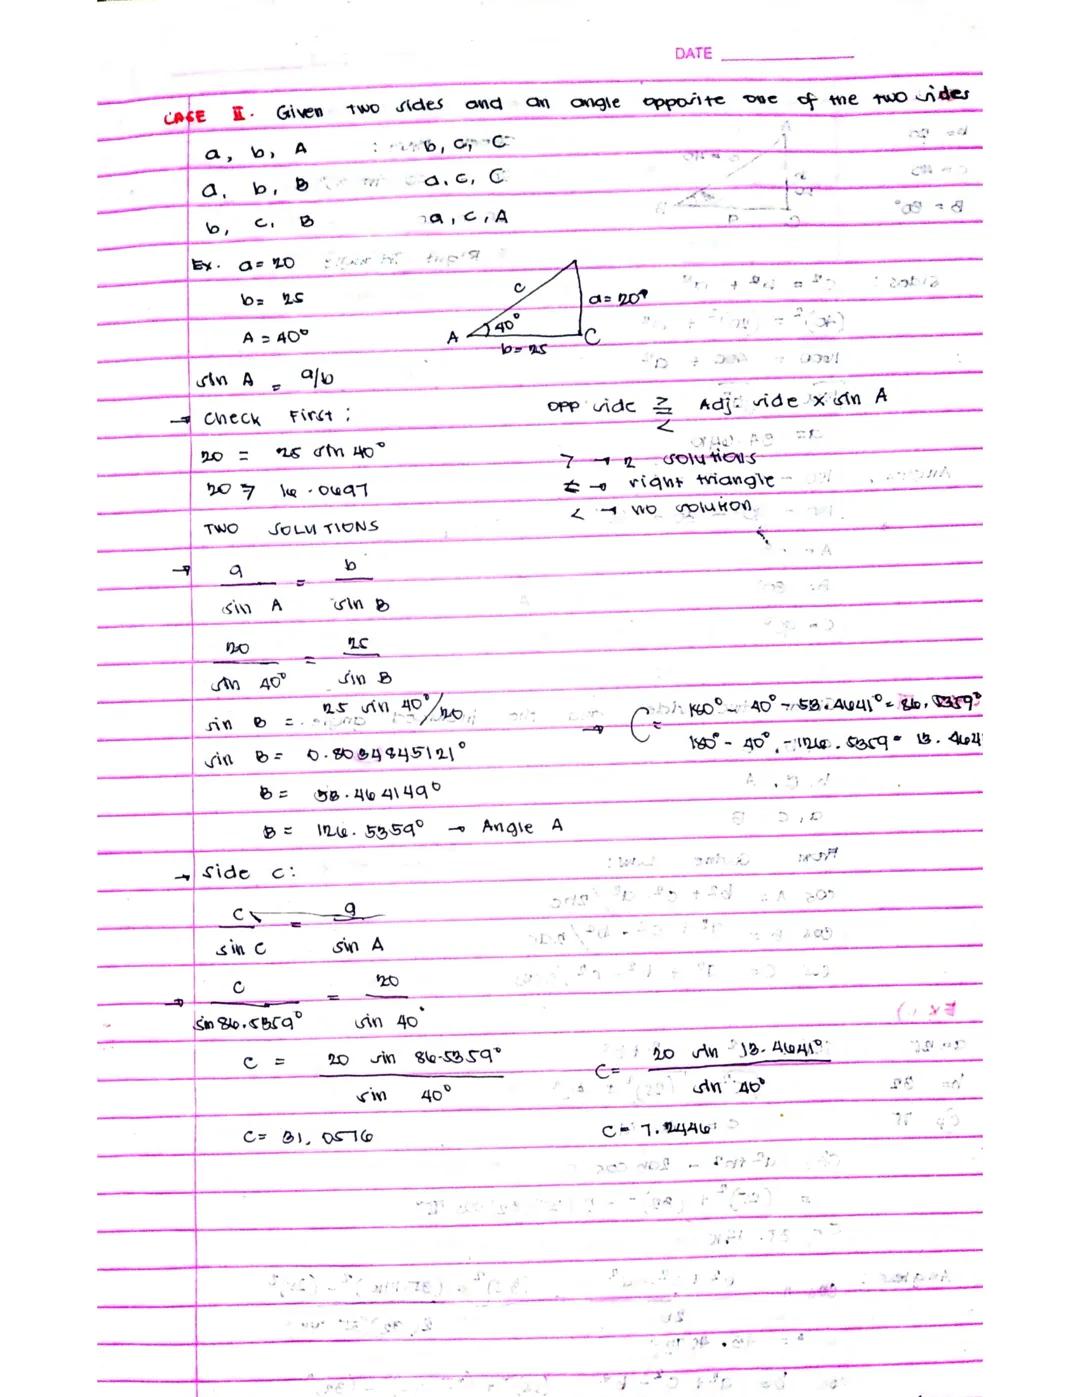 DATE
CASE II. Given two sides and an angle opposite one of the two sides
a, b, A : b, c, C
a, b, B a, c, C
b, c, B a, c, A
Ex. a = 20
b = 25
A = 40°
c
a = 20°
A 40° C
b = 25
sin A = a/b
→ Check First: opp side ≥ < Adj. side x sin A
20 = 25 sin 40° > → 2 solutions
20 > 16.0697 = → right triangle
TWO SOLUTIONS < → no solution
→ a / sin A = b / sin B
20 / sin 40° = 25 / sin B
sin B = 25 sin 40° / 20 → C = 180° - 40° - 53.4641° = 86.5359°
sin B = 0.8034845121° 180° - 40° - 126.5359 = 13.4641
B = 53.464149°
B = 126.5359° → Angle A
→ side c:
c / sin C = a / sin A
→ c / sin 86.5359° = 20 / sin 40°
c = 20 sin 86.5359° / sin 40° C = 20 sin 13.4641° / sin 40°
C = 31.0576 C = 7.2446